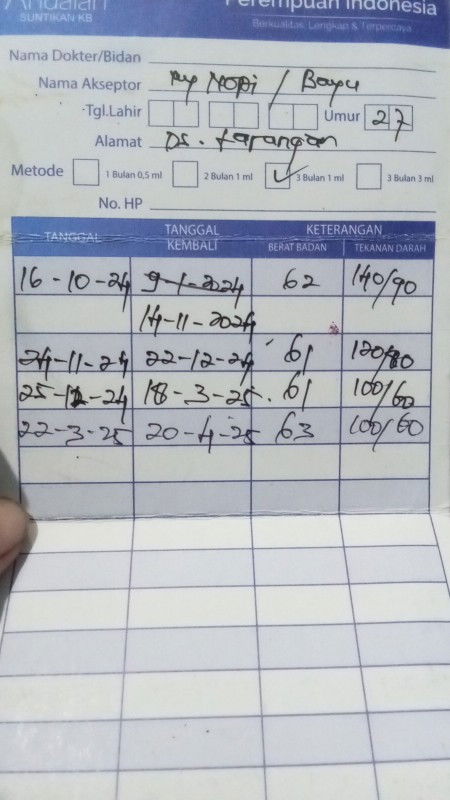 Andalan
SUNTIKAN KB
Perempuan Indonesia
Berkualitas, Lengkap & Terpercaya
Nama Dokter/Bidan
Nama Akseptor Ny Nopi / Bayu
Tgl.Lahir Umur 27
Alamat Ds. Karangan
Metode 1 Bulan 0,5 ml 2 Bulan 1 ml ✓ 3 Bulan 1 ml 3 Bulan 3 ml
No. HP
TANGGAL TANGGAL KEMBALI KETERANGAN
BERAT BADAN TEKANAN DARAH
16-10-24 9-1-2024 62 140/90
14-11-2024
24-11-24 22-12-24 61 120/80
25-12-24 18-3-25 61 100/60
22-3-25 20-4-25 63 100/60